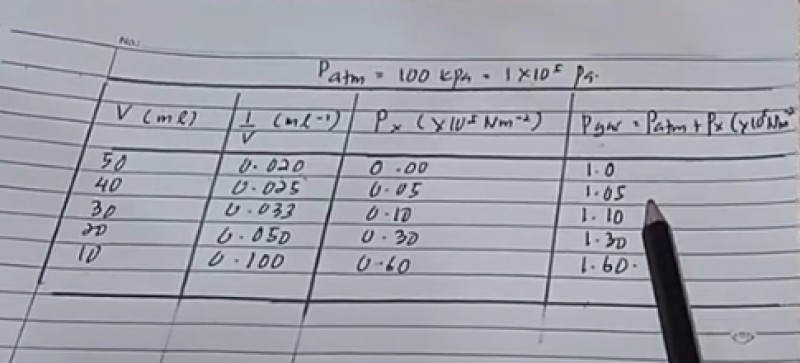 No.:
Patm = 100 kPa = 1 × 10⁵ Pa.
V (ml) 1/V (ml⁻¹) Px (×10⁵ Nm⁻²) Pgas = Patm + Px (×10⁵ Nm⁻²
50 0.020 0.00 1.0
40 0.025 0.05 1.05
30 0.033 0.10 1.10
20 0.050 0.30 1.30
10 0.100 0.60 1.60.